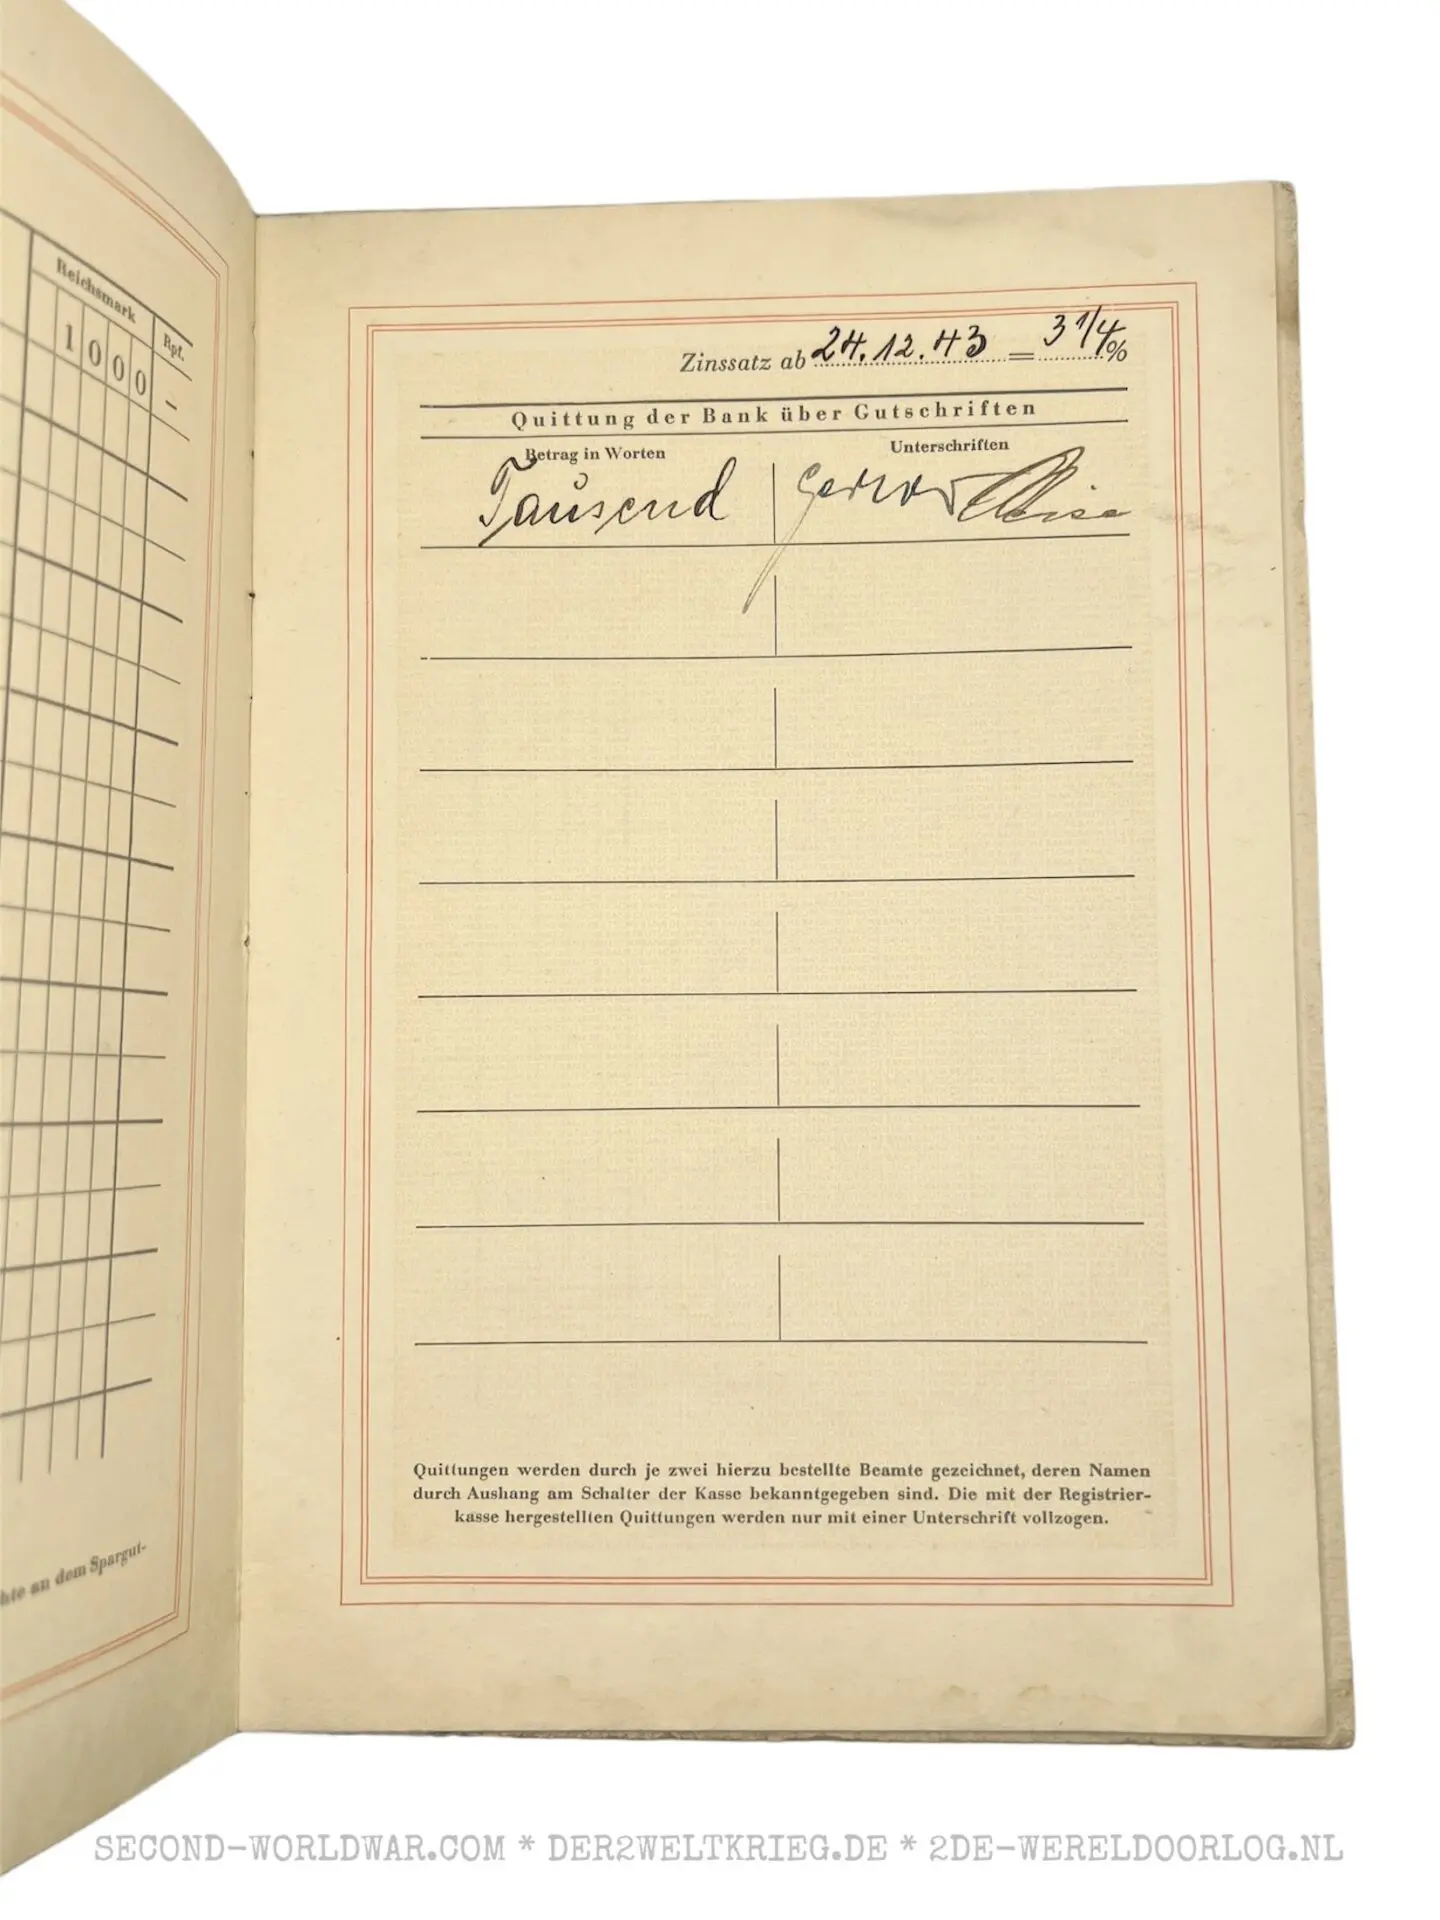 Reichsmark
Rpf.
1000 –
hte an dem Spargut-
Zinssatz ab 24.12.43 = 3 1/4 %
Quittung der Bank über Gutschriften
Betrag in Worten
Unterschriften
Tausend
Quittungen werden durch je zwei hierzu bestellte Beamte gezeichnet, deren Namen
durch Aushang am Schalter der Kasse bekanntgegeben sind. Die mit der Registrier-
kasse hergestellten Quittungen werden nur mit einer Unterschrift vollzogen.
SECOND-WORLDWAR.COM * DER2WELTKRIEG.DE * 2DE-WERELDOORLOG.NL